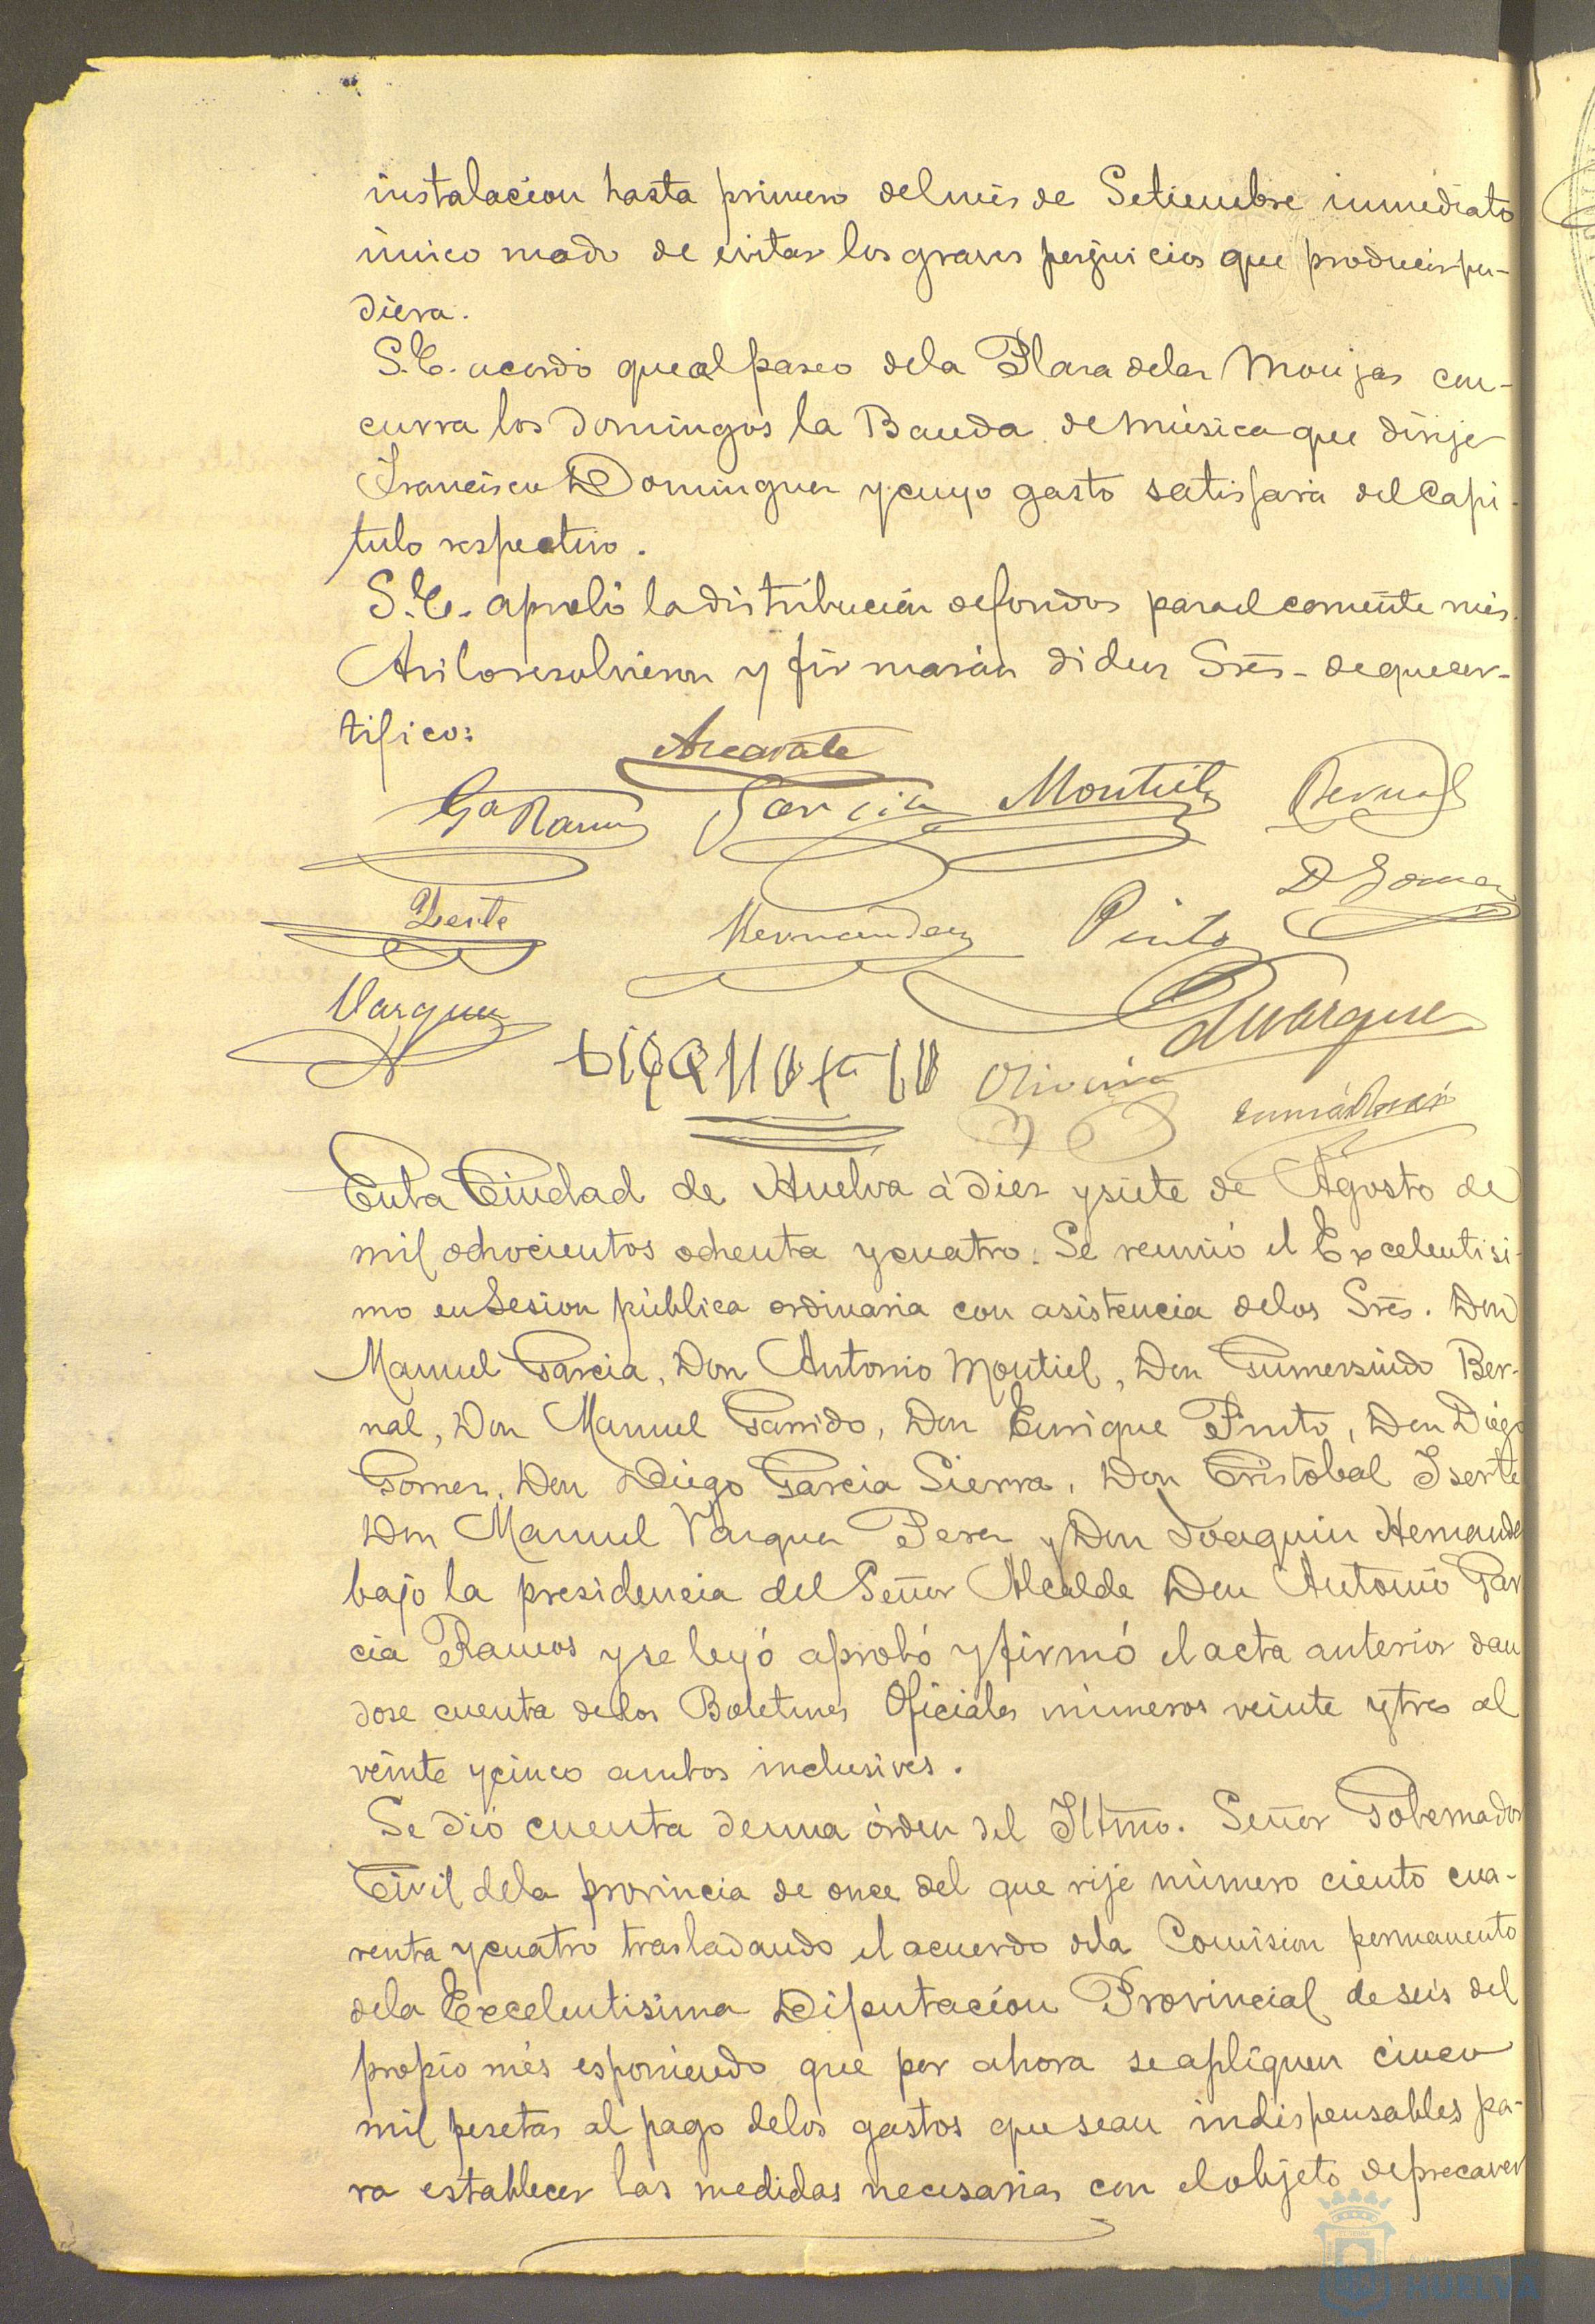 instalacion hasta primero del mes de Setiembre inmediato
único modo de evitar los graves perjuicios que producir pu-
diera.
S.E. acordó que al paseo de la Plaza de las Monjas con-
curra los Domingos la Banda de música que dirije
Francisco Dominguez y cuyo gasto satisfará del Capi-
tulo respectivo.
S.E. aprobó la distribucion de fondos para el corriente mes.
Asi lo resolvieron y firmarán dichos Sres. de que cer-
tifico:
Azcarate
Ga Ramos García Montiel Bernal
D Gomez
Iserte Hernandez Pinto
Vazquez
Oliveira
En la Ciudad de Huelva á diez y siete de Agosto de
mil ochocientos ochenta y cuatro: Se reunió el Excelentisi-
mo en Sesion pública ordinaria con asistencia de los Sres. Don
Manuel Garcia, Don Antonio Montiel, Don Gumersindo Ber-
nal, Don Manuel Garrido, Don Enrique Pinto, Don Diego
Gomez, Don Diego Garcia Sierra, Don Cristóbal Iserte
Don Manuel Vazquez Perez y Don Joaquin Hernandez
bajo la presidencia del Señor Alcalde Don Antonio Gar
cia Ramos y se leyó aprobó y firmó el acta anterior dan
dose cuenta de los Boletines Oficiales números veinte y tres al
veinte y cinco ambos inclusives.
Se dió cuenta de una órden del Iltmo. Señor Gobernador
Civil de la provincia de once del que rije número ciento cua-
renta y cuatro trasladando el acuerdo de la Comision permanente
de la Excelentisima Diputacion Provincial de seis del
propio mes esponiendo que por ahora se apliquen cinco
mil pesetas al pago de los gastos que sean indispensables pa-
ra establecer las medidas necesarias con el objeto de precaver
HUELVA